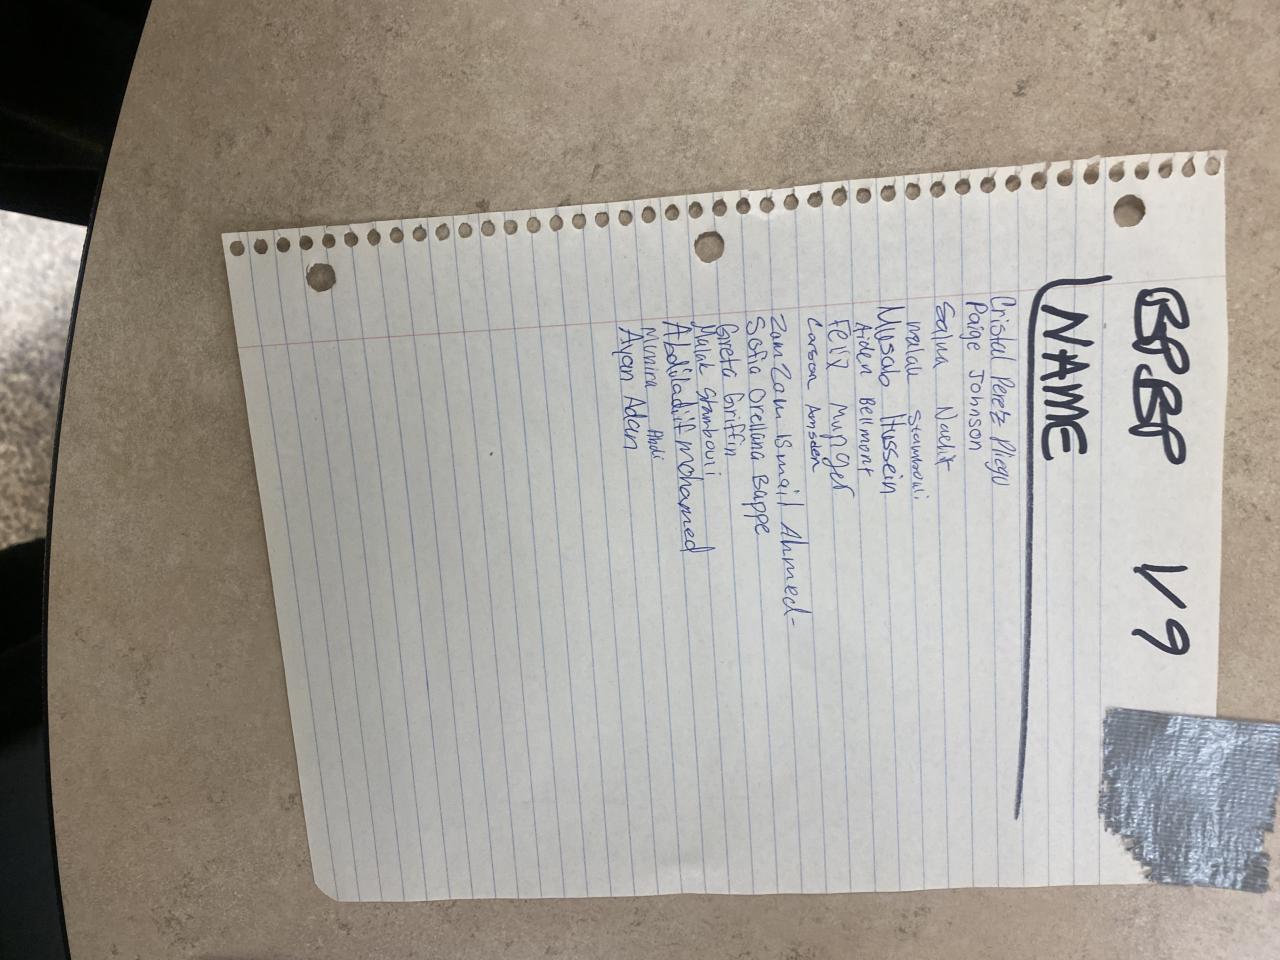 BPBP 1/9
NAME
Cristal Perez Pliego
Paige Johnson
Salma Nachit
malak Stambouli
Musab Hussein
Aiden Bellmont
Felix Munger
Carson Amsden
ZamZam Ismail Ahmed-
Sofia Orellana Bappe
Greta Griffin
Malak Stambouli
Abdiladiif mohamed
Munira Abdi
Ayan Adan